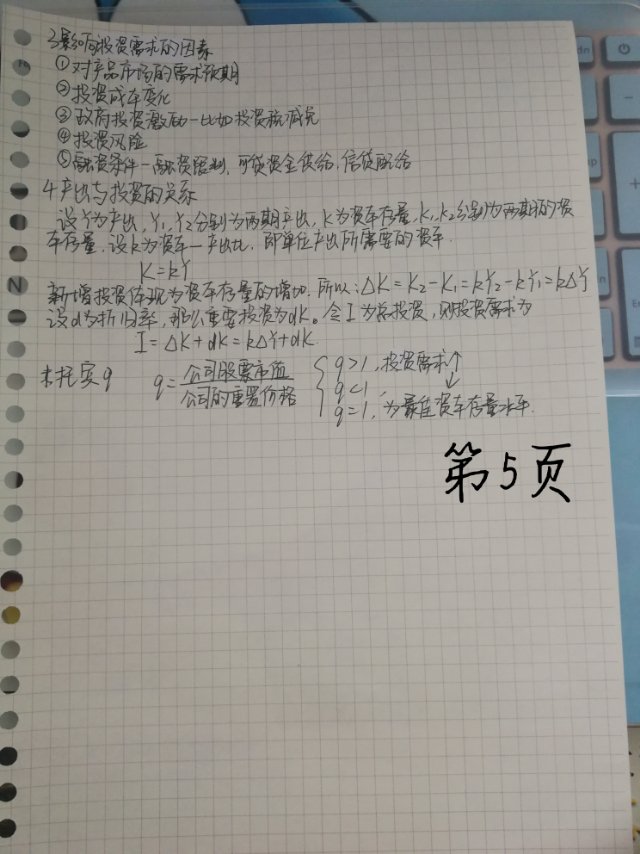 3.影响投资需求的因素
①对产品市场的需求预期
②投资成本变化
③政府投资激励—比如投资税减免
④投资风险
⑤融资条件—融资限制、可贷资金供给、信贷配给
4.产出与投资的关系
设Y为产出,Y₁,Y₂分别为两期产出,K为资本存量,K₁,K₂分别为两期的资
本存量.设k为资本—产出比,即单位产出所需要的资本.
K=kY
新增投资体现为资本存量的增加.所以:ΔK=K₂-K₁=kY₂-kY₁=kΔY
设d为折旧率,那么重要投资为dK。令I为总投资,则投资需求为
I=ΔK+dK=kΔY+dK
*托宾q q=公司股票市值/公司的重置价格
q>1,投资需求↑
q<1, ↓
q=1,为最佳资本存量水平.
第5页